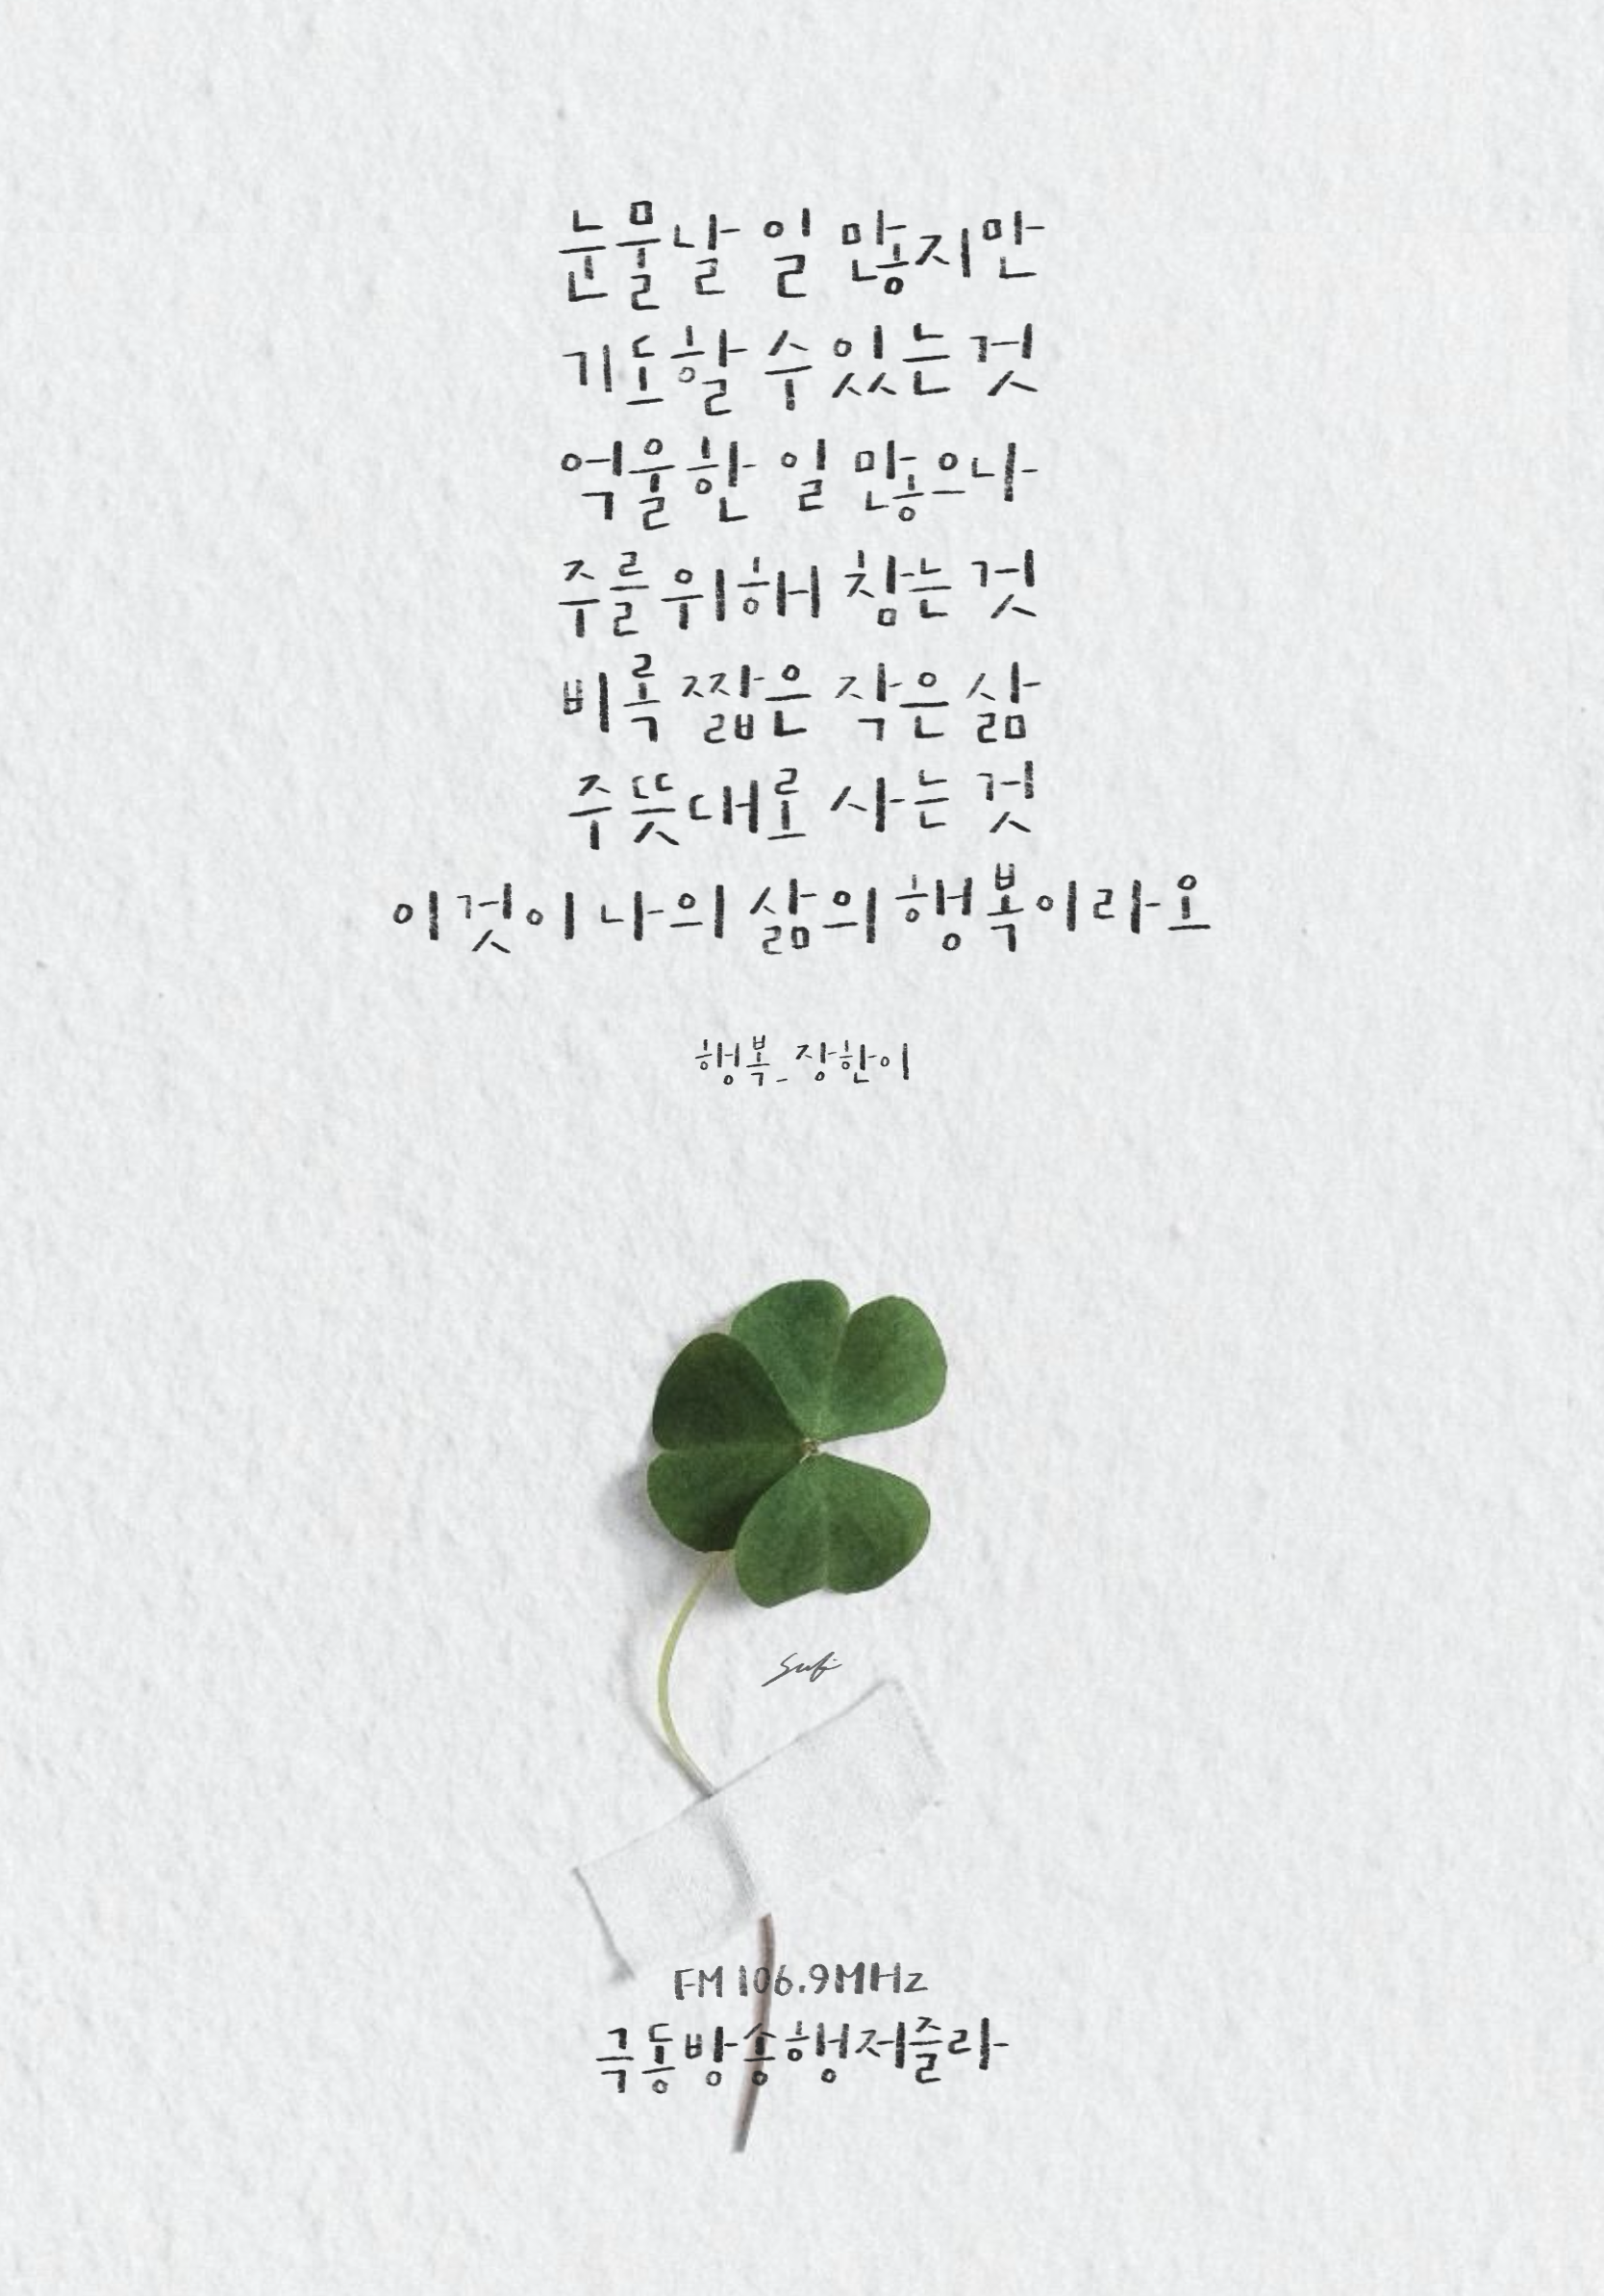 눈물날 일 많지만
기도할 수 있는 것
억울한 일 많으나
주를 위해 참는 것
비록 짧은 작은 삶
주 뜻대로 사는 것
이것이 나의 삶의 행복이라오
행복_장한이
FM 106.9MHz
극동방송행저줄라